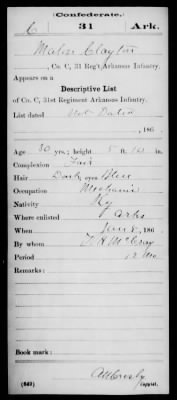 (Confederate.)
6 31 Ark.
Clayton
, Co. C, 31 Reg't Arkansas Infantry.
Appears on a
Descriptive List
of Co. C, 31st Regiment Arkansas Infantry.
List dated Not Dated
, 186
Age 30 yrs.; height 5 ft. 10 in.
Complexion Fair
Hair Dark; eyes Blue
Occupation Mechanic
Nativity Ky
Where enlisted Arks
When , 186
By whom McCray
Period 12 Mo
Remarks:
Book mark:
(649) Copyist.